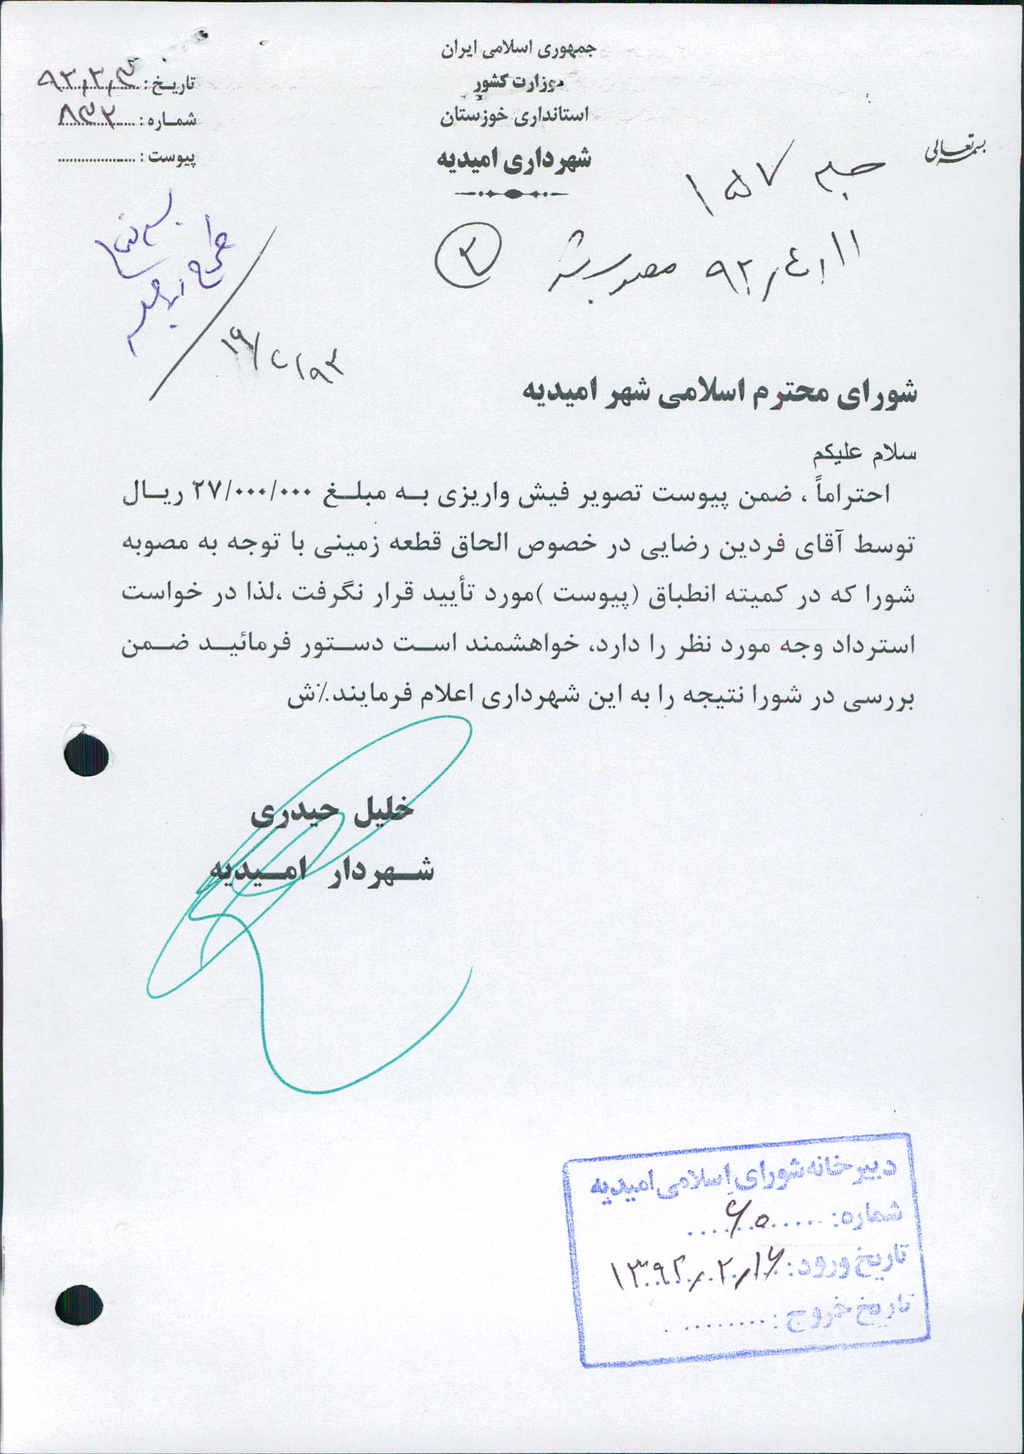 جمهوری اسلامی ایران
وزارت کشور
استانداری خوزستان
شهرداری امیدیه
بسمه تعالی
تاریخ :
شماره : ۸۳۲
پیوست :
جلسه ۱۵۷
۹۲/۴/۱۱ مصوب شد
۲
شورای محترم اسلامی شهر امیدیه
سلام علیکم
احتراماً ، ضمن پیوست تصویر فیش واریزی به مبلغ ۲۷/۰۰۰/۰۰۰ ریال
توسط آقای فردین رضایی در خصوص الحاق قطعه زمینی با توجه به مصوبه
شورا که در کمیته انطباق (پیوست )مورد تأیید قرار نگرفت ،لذا در خواست
استرداد وجه مورد نظر را دارد، خواهشمند است دستور فرمائید ضمن
بررسی در شورا نتیجه را به این شهرداری اعلام فرمایند.٪ش
خلیل حیدری
شهردار امیدیه
دبیرخانه شورای اسلامی امیدیه
شماره: ۶۵
تاریخ ورود: ۱۳۹۲/۲/۱۶
تاریخ خروج :